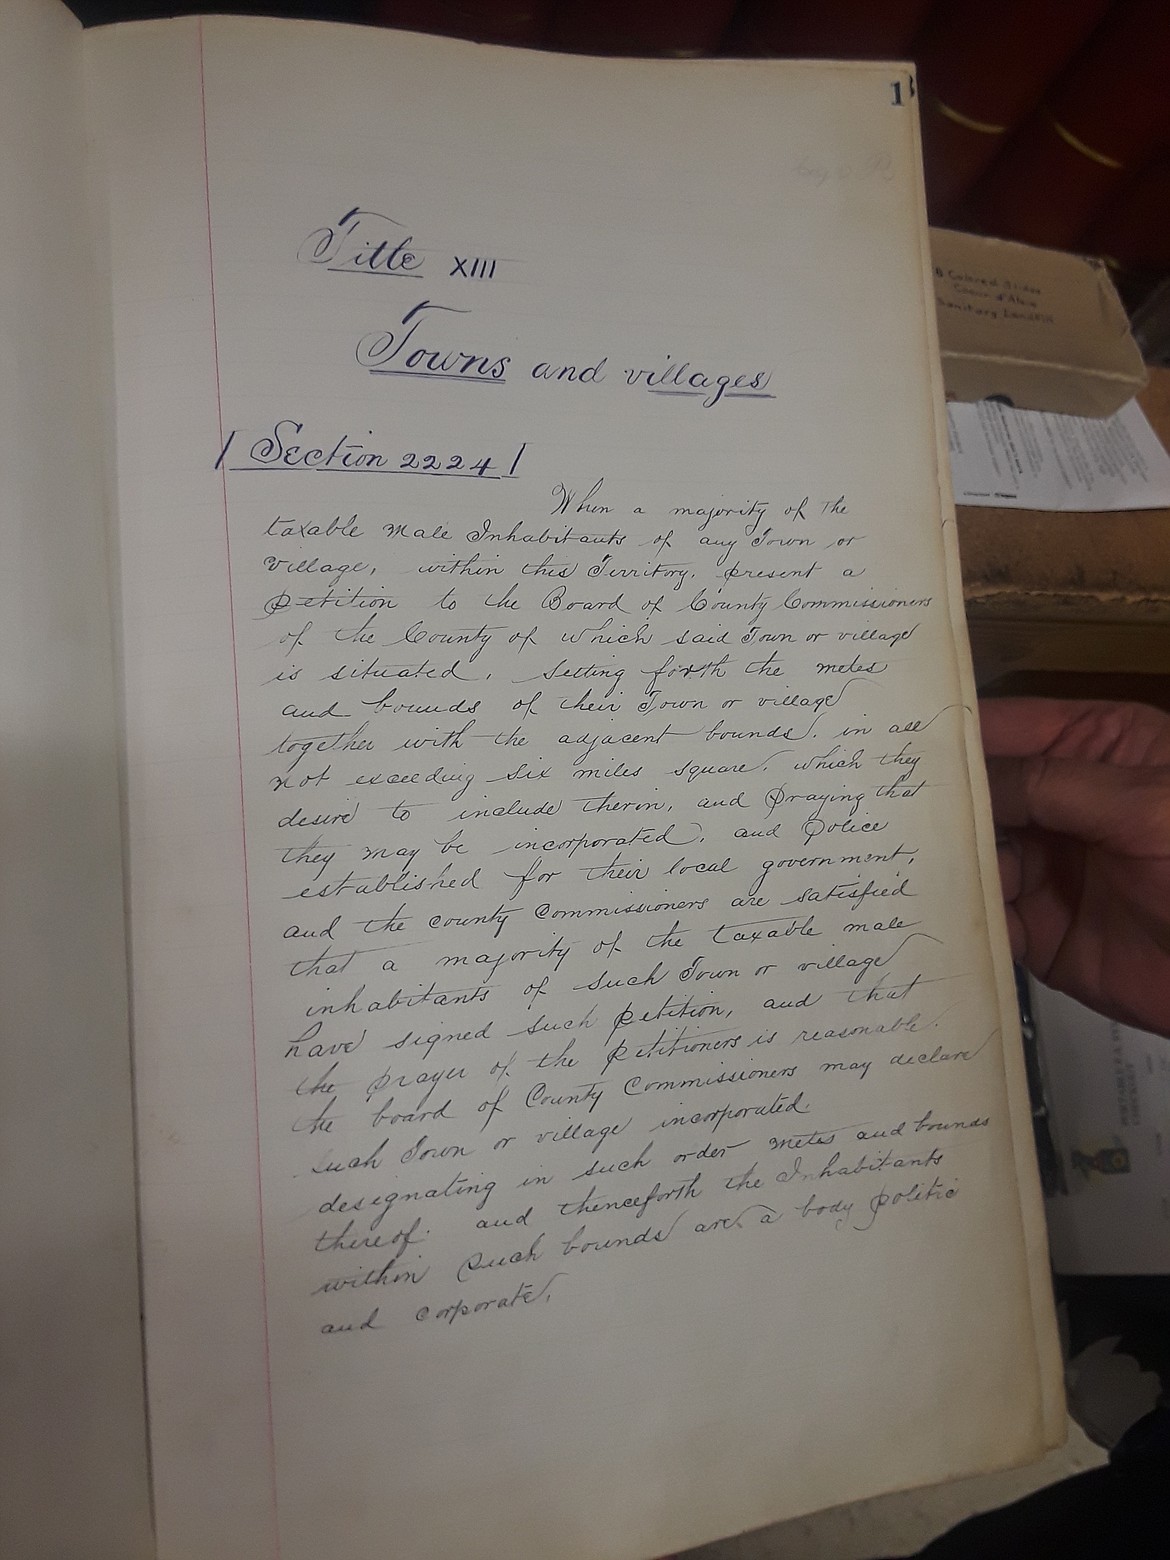 1
Title XIII
Towns and villages
/ Section 2224 /
When a majority of the
taxable Male Inhabitants of any Town or
village, within this Territory, present a
petition to the Board of County Commissioners
of the County of which said Town or village
is situated, setting forth the metes
and bounds of their Town or village
together with the adjacent bounds, in all
not exceeding six miles square, which they
desire to include therin, and praying that
they may be incorporated, and Police
established for their local government,
and the county Commissioners are satisfied
that a majority of the taxable male
inhabitants of such Town or village
have signed such petition, and that
the prayer of the petitioners is reasonable.
the board of County Commissioners may declare
such Town or village incorporated.
designating in such order metes and bounds
thereof. and thenceforth the Inhabitants
within such bounds are a body politic
and corporate.
Colored Slides
Coeur d'Alene
Sanitary Landfill